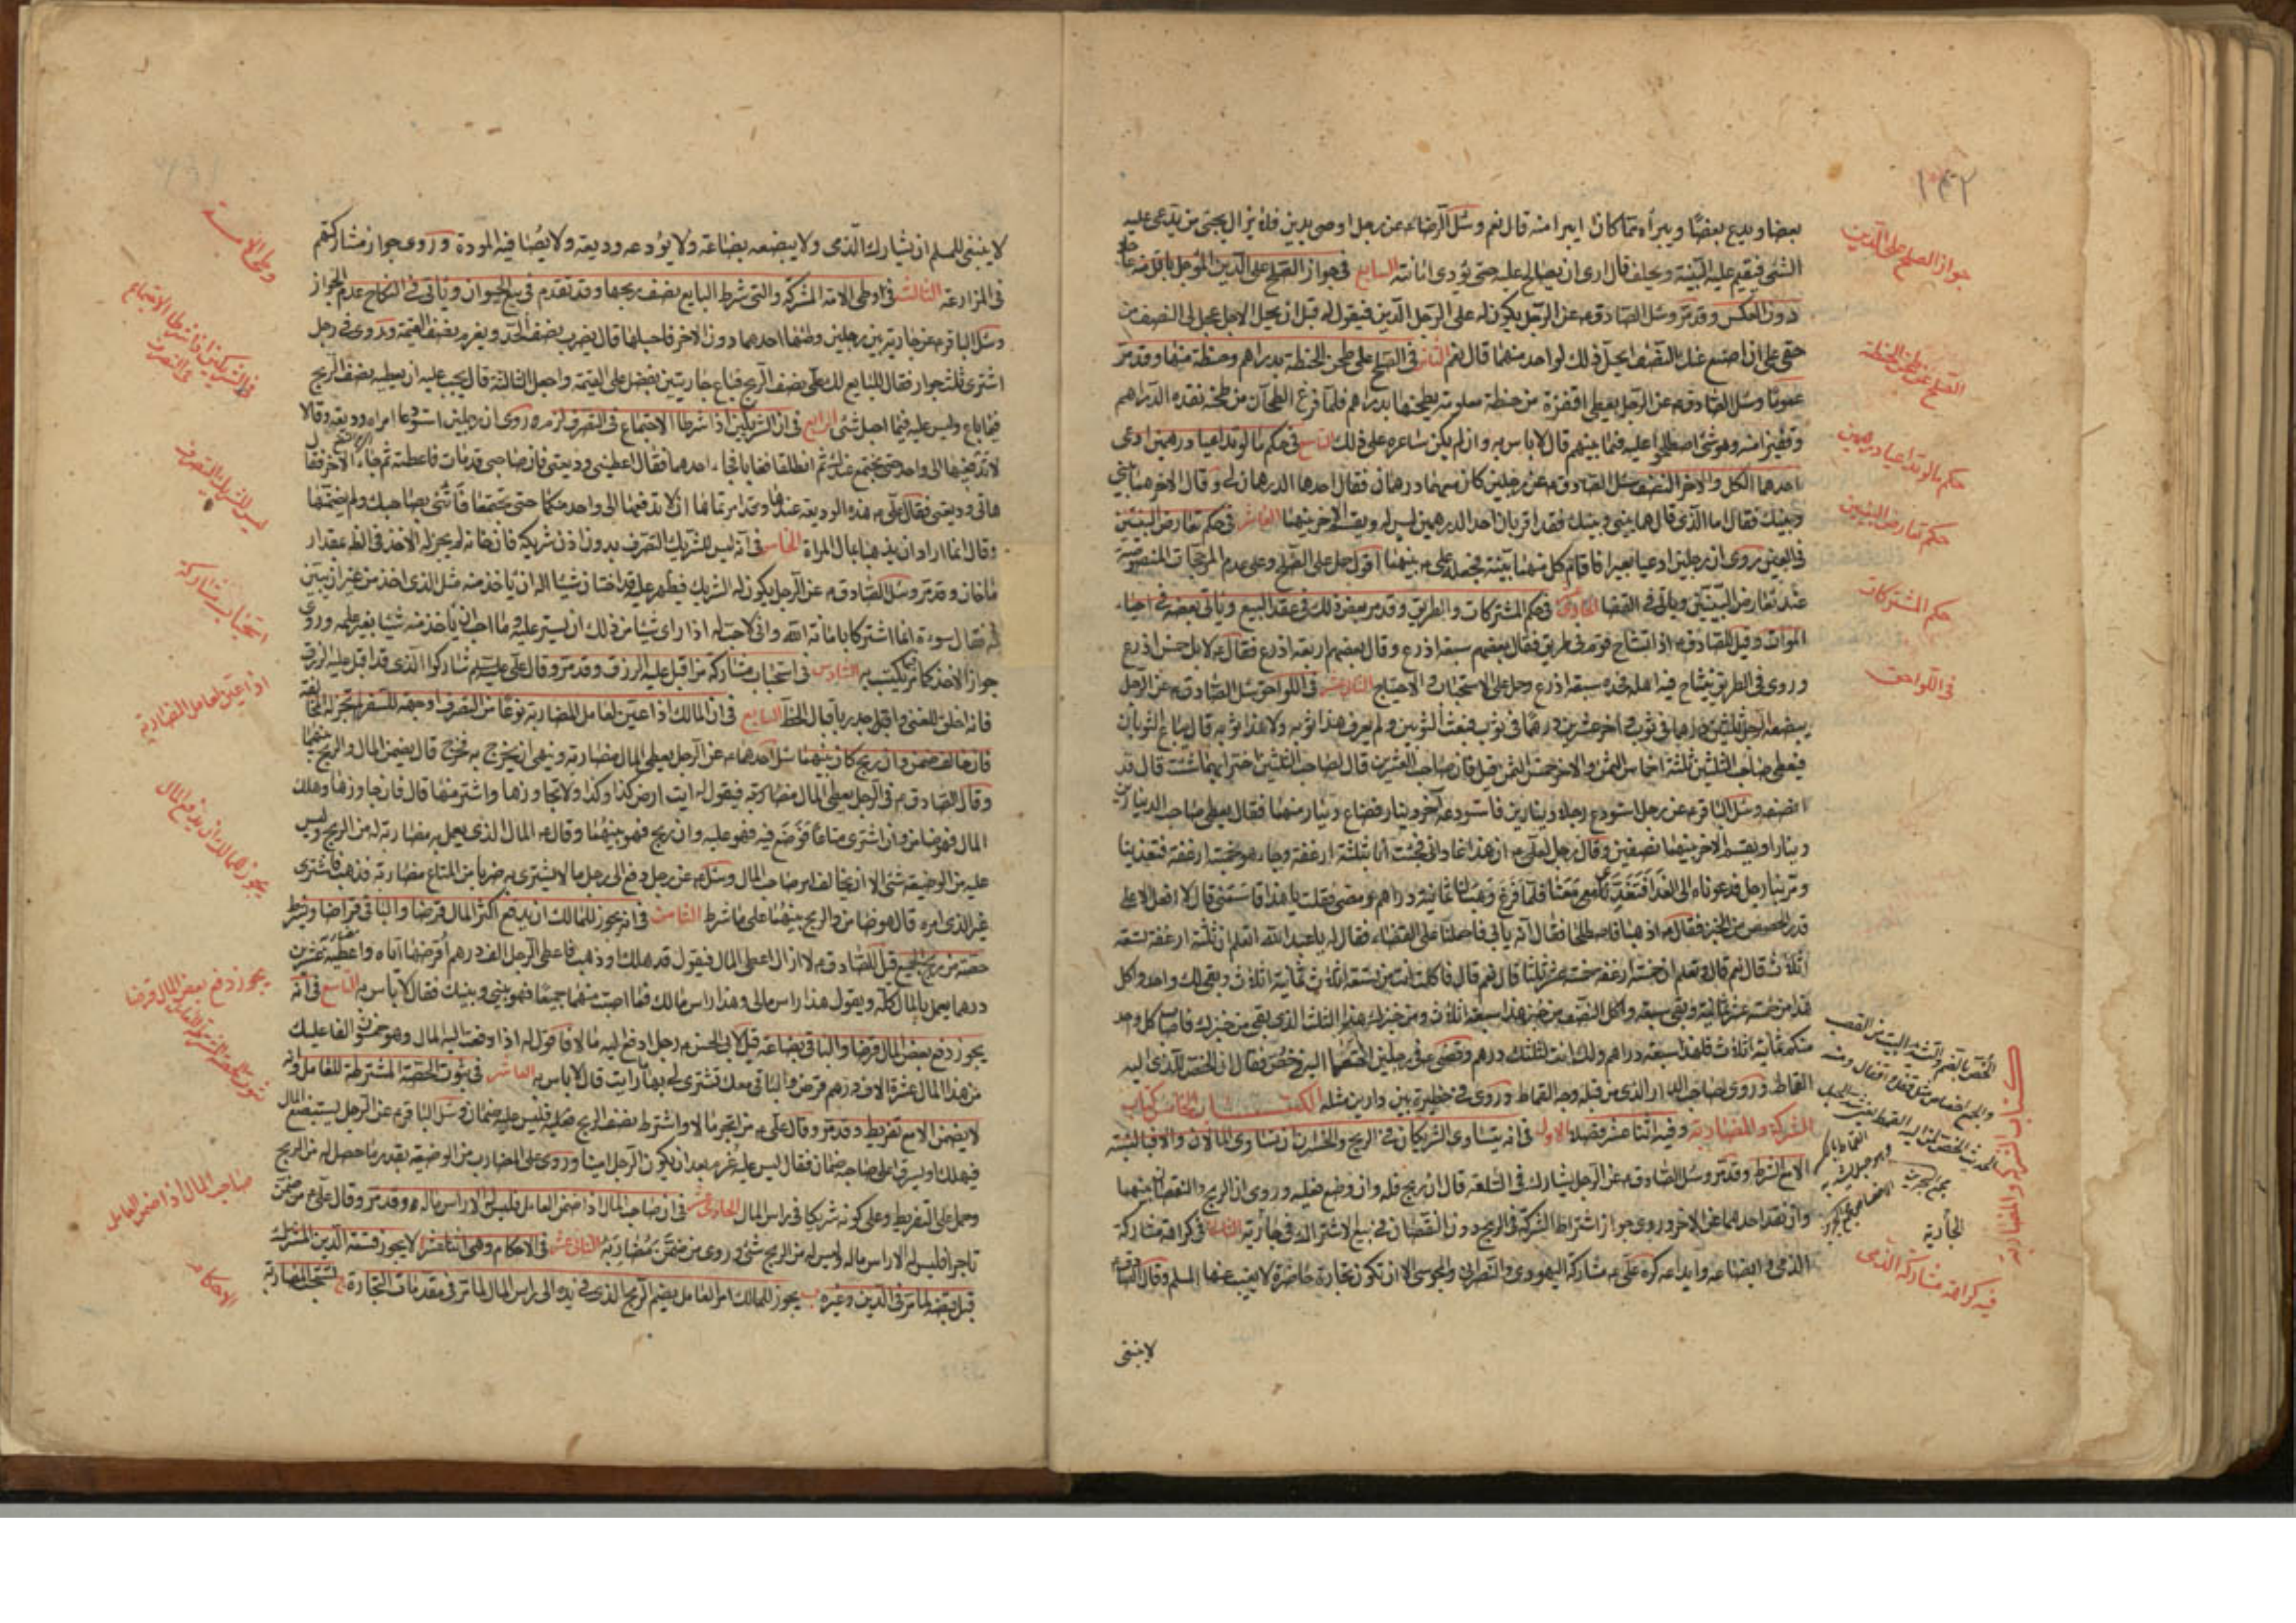 ١٤٢
بعضا ويدع بعضًا ويبرأه مما كان ايبرا منه قال نعم وسئل الرضا ء عن رجل اوصى بدين فلا يزال يجئ من يدعى عليه
الشئ فيقيم عليه البينة ويحلف قال ارى ان يصالح عليه حتى يؤدى امانته السابع فى جواز الصلح على الدين المؤجل باقل منه
دون العكس وقد مر وسئل الصادق ء عن الرجل يكون له على الرجل الدين فيقول له قبل ان يحل الاجل عجل لى النصف من
حقى على ان اضع عنك النصف ايحل ذلك لواحد منهما قال نعم الثامن فى الصلح على طحن الحنطة بدراهم وحنطة منها وقد مر
عموما وسئل الصادق ء عن الرجل يعطى اقفزة من حنطة معلومة يطحنها بدراهم فلما فرغ الطحان من طحنه نقده الدراهم
وقفيزا منه وهو شئ اصطلحوا عليه فيما بينهم قال لا باس به وان لم يكن ساعره على ذلك التاسع فى حكم ما لو تداعيا درهمين ادعى
احدهما الكل والاخر النصف سئل الصادق ء عن رجلين كان معهما درهمان فقال احدهما الدرهمان لى وقال الاخر هما بينى
وبينك فقال اما الذى قال هما بينى وبينك فقد اقر بان احد الدرهمين ليس له ويقسم الاخر بينهما العاشر فى حكم تعارض البينتين
فى العين روى ان رجلين ادعيا بعيرا فاقام كل منهما بينة فجعله على ء بينهما اقول حمل على الصلح وعلى عدم المرجحات المنصوصة
عند تعارض البينتين ويأتى فى القضا الحادى عشر فى حكم المشتركات والطريق وقد مر بعض ذلك فى عقد البيع ويأتى بعضه فى احياء
الموات وقيل للصادق ء اذا تشاح قوم فى طريق فقال بعضهم سبعة اذرع وقال بعضهم اربعة اذرع فقال ء لا بل خمس اذرع
وروى فى الطريق يتشاح فيه اهله فحده سبعة اذرع وحمل على الاستحباب والاحتياج الثانى عشر فى اللواحق سئل الصادق ء عن الرجل
يبضعه الرجل ثلثين درهما فى ثوب واخر عشرين درهما فى ثوب فبعث الثوبين ولم يعرف هذا ثوبه ولا هذا ثوبه قال يباع الثوبان
فيعطى صاحب الثلثين ثلثة اخماس الثمن والاخر خمس الثمن قيل فان صاحب العشرين قال لصاحب الثلثين اختر ايهما شئت قال قد
انصفه وسئل الباقر ء عن رجل استودع رجلا دينارين فاستودعه آخر دينار فضاع دينار منهما فقال يعطى صاحب الدينارين
دينارا ويقسم الاخر بينهما نصفين وقال رجل لعلى ء ان هذا غادانى فجئت انا بثلثة ارغفة وجاء هو بخمسة ارغفة فتغدينا
ومر بنا رجل فدعوناه الى الغدا فتغدى معنا فلما فرغ وهب لنا ثمانية دراهم ومضى فقلت يا هذا قاسمنى فقال لا افعل الا على
قدر الحصص من الخبز فقال ء اذهبا فاصطلحا فقال انه يأبى فاحملنا على القضاء فقال له يا عبد الله اتعلم ان ثلثة ارغفة تسعة
اثلاث قال نعم قال وتعلم ان خمسة ارغفة خمسة عشر ثلثا قال نعم قال فاكلت انت من تسعة اثلاث ثمانية اثلاث وبقى لك واحد واكل
هذا من خمسة عشر ثمانية وبقى سبعة واكل الضيف من خبز هذا سبعة اثلاث ومن خبزك هذا الثلث الذى بقى من خبزك فاصاب كل واحد
منكم ثمانية اثلاث فلهذا سبعة دراهم ولك انت لثلثك درهم وقضى على ء فى رجلين اختصما اليه فى خص فقال ان الخص للذى اليه
القماط وروى لصاحب الدار الذى من قبله وجه القماط وروى فى حظيرة بين دارين مثله الكتاب الخامس كتاب
الشركة والمضاربة وفيه اثنا عشر فصلا الاول فى انه يتساوى الشريكان فى الربح والخسران ان تساوى المالان والا فبالنسبة
الا مع الشرط وقد مر وسئل الصادق ء عن الرجل يشارك فى السلعة قال ان ربح فله وان وضع فعليه وروى ان الربح والنقصان بينهما
وان نقد احدهما عن الاخر وروى جواز اشتراط الشركة فى الربح دون النقصان فى بيع لاشتراك فى جارية الثانى فى كراهة مشاركة
الذمى وايضاعه وايداعه كره على ء مشاركة اليهودى والنصرانى والمجوسى الا ان تكون تجارة حاضرة لا يغيب عنها المسلم وقال
لا ينبغى
جواز الصلح على الدين
الصلح على طحن الحنطة
حكم ما لو تداعيا درهمين
حكم تعارض البينتين
حكم المشتركات
فى اللواحق
كتاب الشركة والمضاربة
فيه كراهة مشاركة الذمى
لا ينبغى للمسلم ان يشارك الذمى ولا يبضعه بضاعة ولا يودعه وديعة ولا يصافيه المودة وروى جواز مشاركتهم
فى المزارعة الثالث فى وطى الامة المشتركة والتى شرط البايع نصف ربحها وقد تقدم فى بيع الحيوان ويأتى فى النكاح عدم الجواز
وسئل الباقر ء عن جارية بين رجلين وطئها احدهما دون الاخر فاحبلها قال يضرب نصف الحد ويغرم نصف القيمة وروى فى رجل
اشترى ثلث جوار فقال للبايع لك على نصف الربح فباع جاريتين بفضل على القيمة واحبل الثالثة قال يجب عليه ان يعطيه نصف الربح
فيما باع وليس عليه فيما احبل شئ الرابع فى ان الشريكين اذا شرطا الاجتماع فى التصرف لزم ء روى ان رجلين استودعا امراة وديعة وقالا
لا تدفعيها الى واحد حتى نجتمع عندك ثم انطلقا فغابا فجاء احدهما فقال اعطينى وديعتى فان صاحبى قد مات فاعطته ثم جاء الاخر فقال
هاتى وديعتى فقال على ء هذه الوديعة عندها وقد امرتماها ان لا تدفعها الى واحد منكما حتى تجتمعا فأتنى بصاحبك ولم يضمنها
وقال انما ارادا ان يذهبا بمال المراة الخامس فى انه ليس للشريك التصرف بدون اذن شريكه فان خانه لم يجز له الاخذ فى الظ بمقدار
ما خان وقد مر وسئل الصادق ء عن الرجل يكون له الشريك فيظهر عليه قد اختان شيئا اله ان يأخذ منه مثل الذى اخذ من غير ان يبين
له فقال سوءة انما اشتركا بامانة الله وانى لاحب له اذا راى شيئا من ذلك ان يستر عليه وما احب ان يأخذ منه شيئا بغير علمه وروى
جواز الاخذ كما مر فيما يكتسب به السادس فى استحباب مشاركة من اقبل عليه الرزق وقد مر وقال على عليه السلم شاركوا الذى قد اقبل عليه الرزق
فانه اخلق للغنى واقبل جدير باقبال الحظ السابع فى ان المالك اذا عين لعامل المضاربة نوعا من التصرف او جهة للسفر لم تجز له المخالفة
فان خالف ضمن وان ربح كان بينهما سئل احدهما ء عن الرجل يعطى المال مضاربة وينهى ان يخرج به فخرج قال يضمن المال والربح بينهما
وقال الصادق ء فى الرجل يعطى المال مضاربة فيقول له ايت ارض كذا وكذا ولا تجاوزها واشتر منها قال فان جاوزها وهلك
المال فهو ضامن وان اشترى متاعا فوضع فيه فهو عليه وان ربح فهو بينهما وقال ء المال الذى يعمل به مضاربة له من الربح وليس
عليه من الوضيعة شئ الا ان يخالف امر صاحب المال وسئل ء عن رجل دفع الى رجل مالا يشترى به ضربا من المتاع مضاربة فذهب فاشترى
غير الذى امره قال هو ضامن والربح بينهما على ما شرط الثامن فى انه يجوز للمالك ان يدفع اكثر المال قرضا والباقى قراضا ويشترط
حصته من ربح الجميع قيل للصادق ء لا ازال اعطى المال فيقول قد هلك او ذهب فاعطى الرجل الف درهم اقرضها اياه واعطيه عشرين
درهما يعمل بالمال كله ويقول هذا راس مالى وهذا راس مالك فما اصبت منهما جميعا فهو بينى وبينك فقال لا باس به التاسع فى انه
يجوز دفع بعض المال قرضا والباقى بضاعة قيل لابى الحسن ء رجل ادفع اليه مالا فاقول له اذا دفعت اليه المال وهو خمسون الفا عليك
من هذا المال عشرة الاف درهم قرض والباقى معك تشترى لى بها ما رايت قال لا باس به العاشر فى ثبوت الحصة المشترطة للعامل وانه
لا يضمن الا مع تفريط وقد مر وقال على ء من اتجر مالا واشترط نصف الربح فليس عليه ضمان وسئل الباقر ء عن الرجل يستبضع المال
فيهلك او يسرق اعلى صاحبه ضمان فقال ليس عليه غرم بعد ان يكون الرجل امينا وروى على المضارب من الوضيعة بقدر ما حصل له من الربح
وحمل على التفريط وعلى كونه شريكا فى راس المال الحادى عشر فى ان صاحب المال اذا ضمن العامل فليس له الا راس ماله ء وقد مر وقال على ء من ضمن
تاجرا فليس له الا راس ماله وليس له من الربح شئ وروى من ضمن مضاربة الثانى عشر فى الاحكام وهى اثنا عشر ا لا يجوز قسمة الدين المشترك
قبل قبضه لما مر فى الدين وغيره ب يجوز للمالك امر العامل بضم الربح الذى فى يده الى راس المال لما مر فى مقدمات التجارة ج تستحب المضاربة
وطى الامة
فى الشريكين اذا شرطا الاجتماع فى التصرف
ليس للشريك التصرف
استحباب مشاركة
اذا عين لعامل المضاربة
يجوز للمالك ان يدفع المال
يجوز دفع بعض المال قرضا
ثبوت الحصة المشترطة للعامل
صاحب المال اذا ضمن العامل
الاحكام